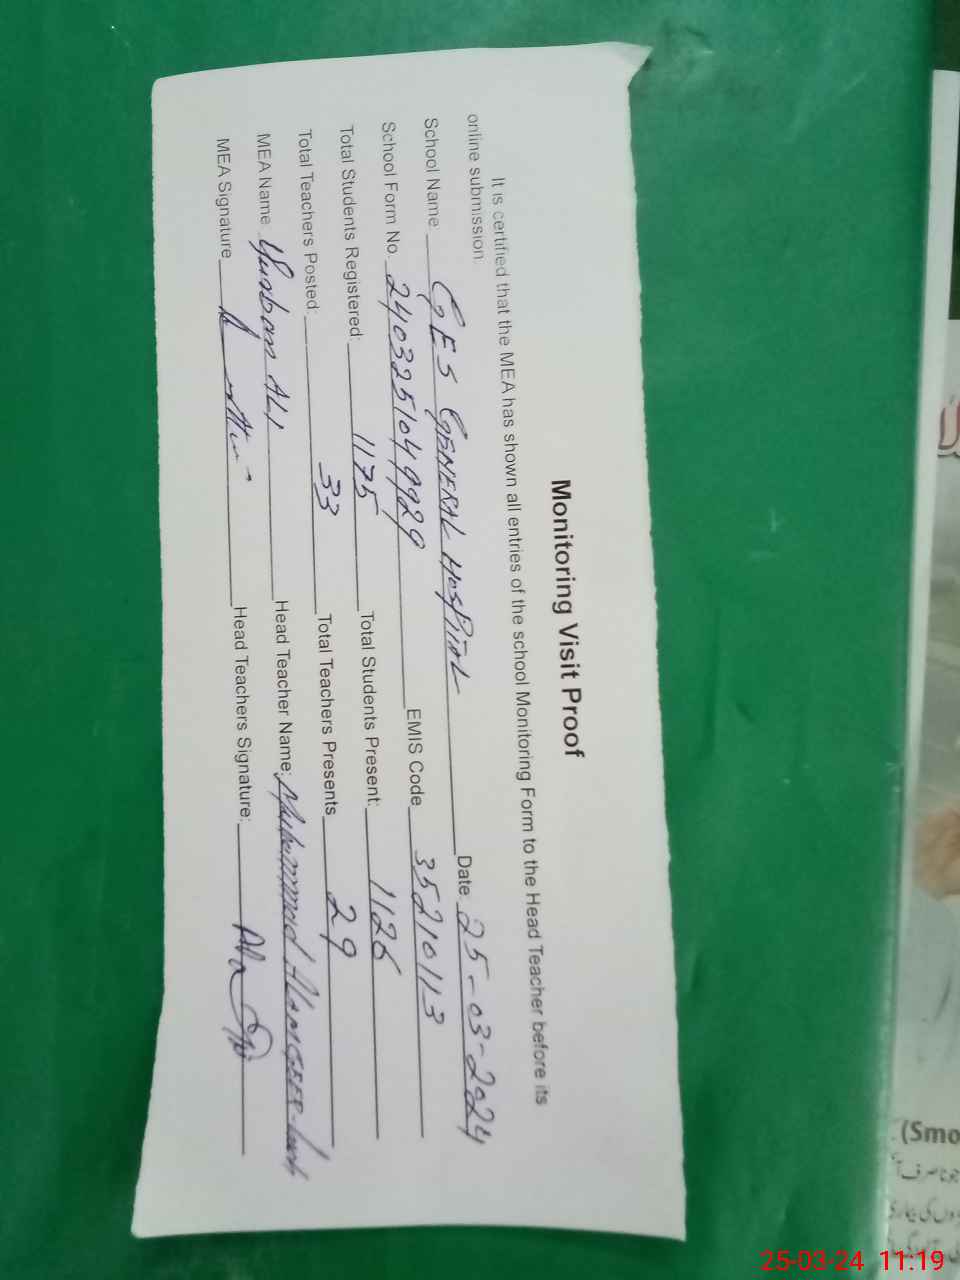 Monitoring Visit Proof
It is certified that the MEA has shown all entries of the school Monitoring Form to the Head Teacher before its
online submission.
School Name GES GENERAL HOSPITAL Date 25-03-2024
School Form No. 2403251049929 EMIS Code 35210113
Total Students Registered: 1175 Total Students Present: 1126
Total Teachers Posted: 33 Total Teachers Presents 29
MEA Name ALI Head Teacher Name: Muhammad ALAMGEER
MEA Signature Head Teachers Signature:
(Smo
25-03-24 11:19